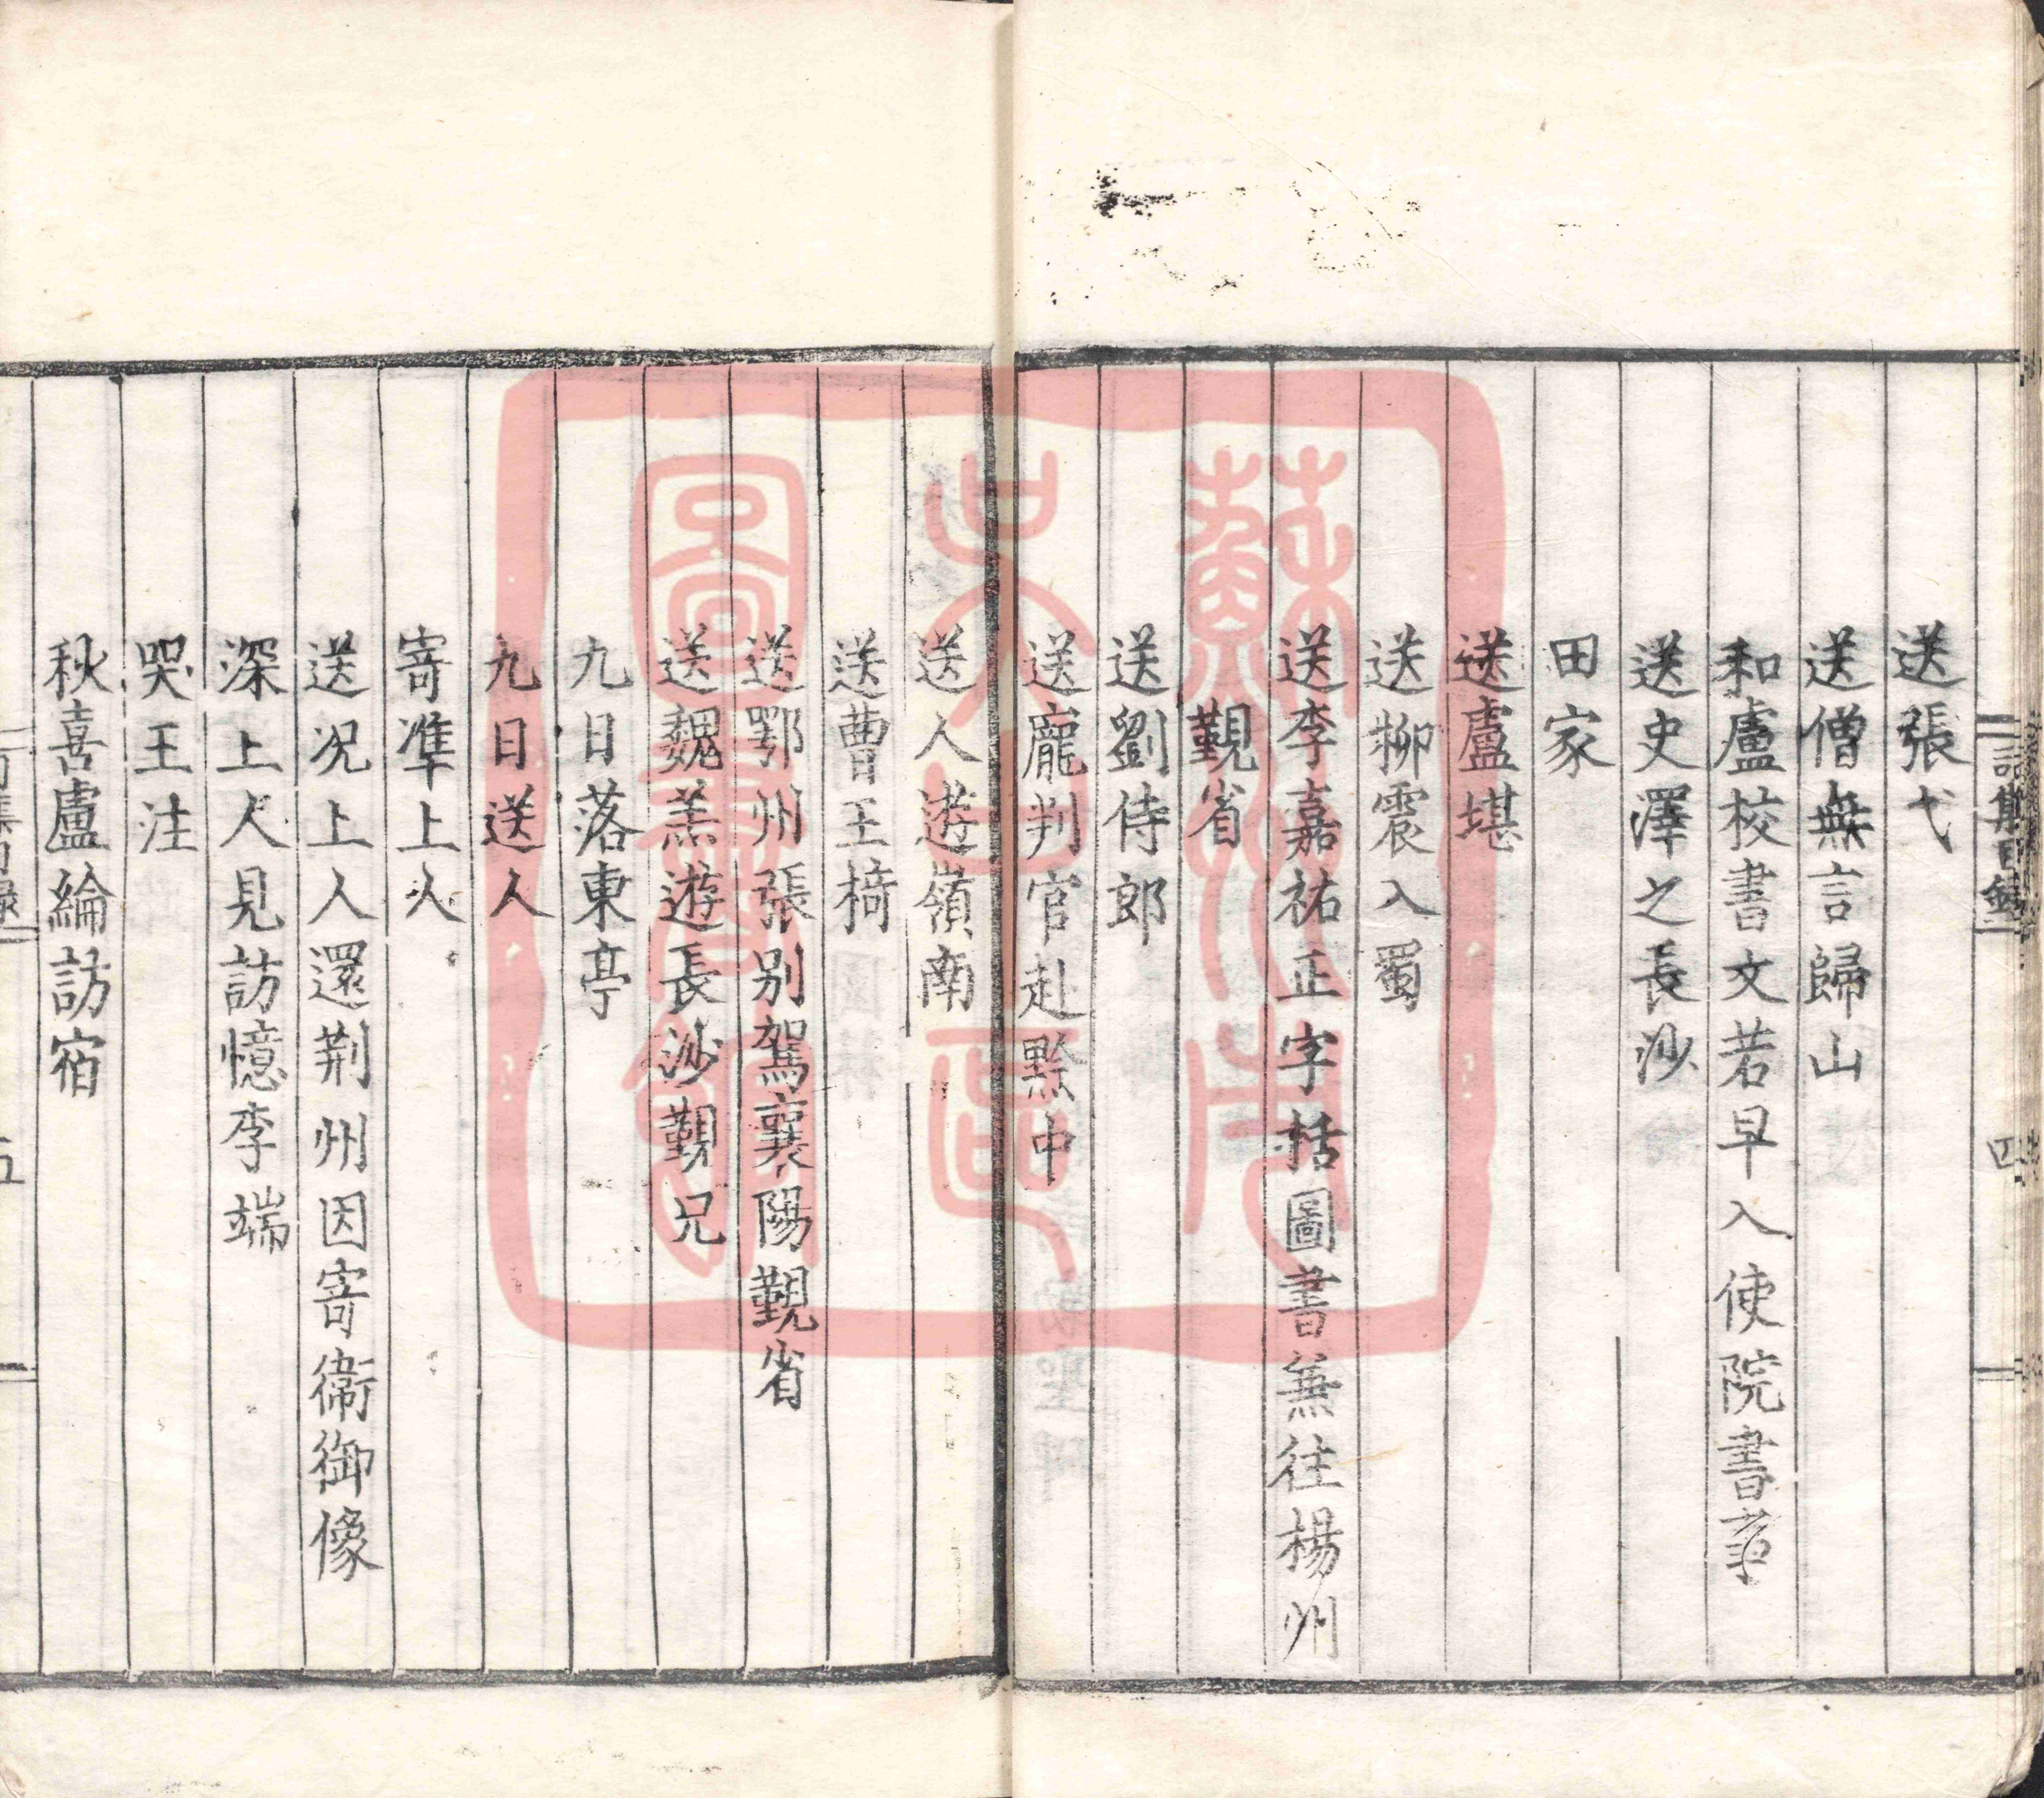 送張弋
送僧無言歸山
和盧校書文若早入使院書事
送史澤之長沙
田家
送盧堪
送柳震入蜀
送李嘉祐正字括圖書蕪往楊州
覲省
送劉侍郎
送龐判官赴黔中
送人遊嶺南
送曹王椅
送鄂州張別駕襄陽覲省
送魏羔遊長沙覲兄
九日落東亭
九日送人
寄準上人
送況上人還荆州因寄衛御像
深上人見訪憶李端
哭王注
秋喜盧綸訪宿
四
五